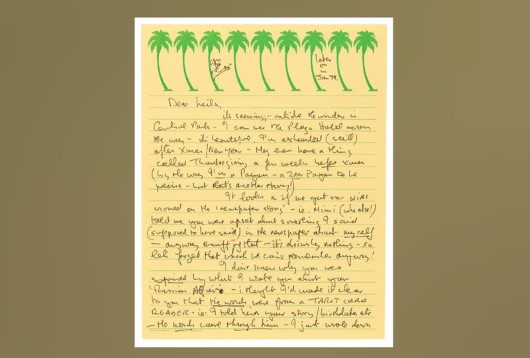 Later
on in
Jan 79.
Dear Leila,
it's snowing – outside the window is
Central Park – I can see the Plaza Hotel across
the way – its beautiful. I'm exhausted (still)
after Xmas/New Year – they even have a thing
called Thanksgiving a few weeks before Xmas
(by the way I'm a Pagan – a Zen Pagan to be
precise – but that's another story!)
It looks as if we got our wires
crossed on the 'newspaper story' – ie. Mimi (who else!)
told me you were upset about something I said
(supposed to have said) in the newspaper about myself
– anyway enuff of that – its obviously nothing – so
let's forget that which we can't remember anyway!
I don't know why you were
by what I wrote you about your
'Russian Affair' – i thought I'd made it clear
to you that the words were from a TAROT CARD
READER – ie: I told him your story/birthdate etc
– the words came through him – I just wrote down